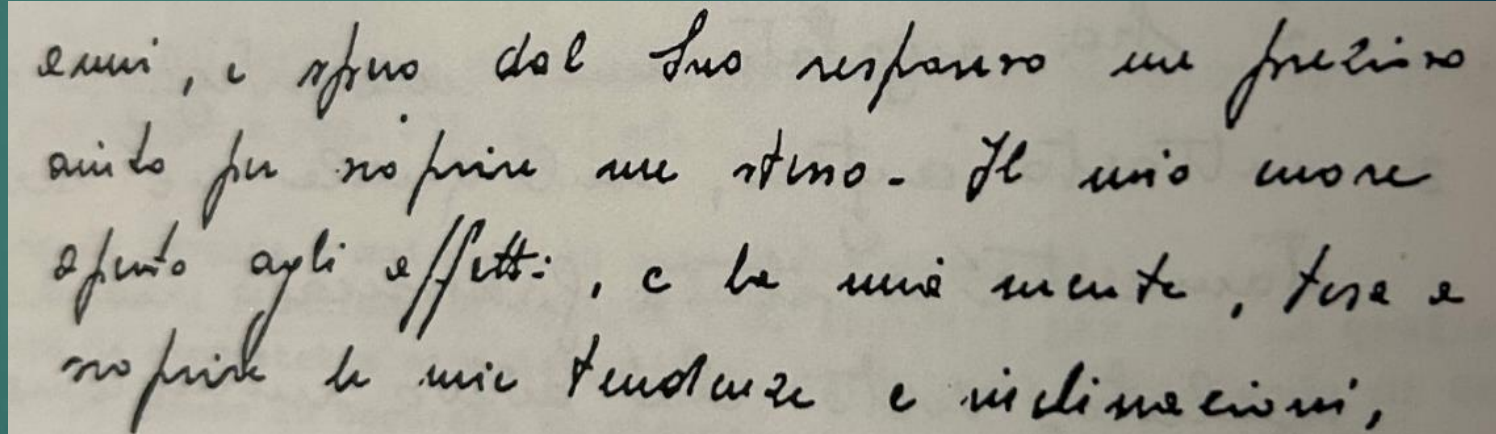 anni, e spero dal Suo responso un prezioso
aiuto per scoprire me stesso. Il mio cuore
aperto agli affetti, e la mia mente, tesa a
scoprire le mie tendenze e inclinazioni,